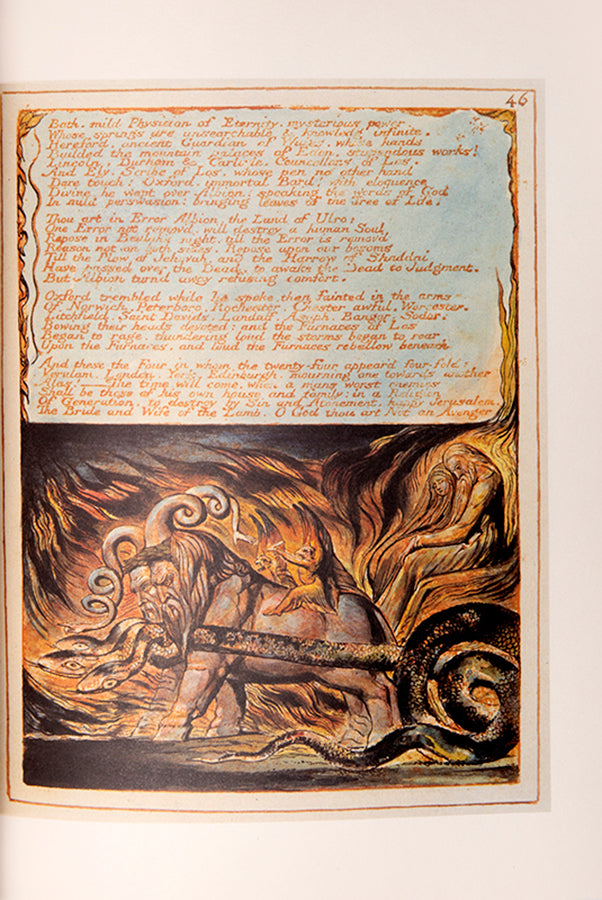 46
Bath. mild Physician of Eternity. mysterious power
Whose springs are unsearchable & knowledg infinite.
Hereford, ancient Guardian of Wales, whose hands
Builded the mountain palaces of Eden, stupendous works!
Lincoln, Durham & Carlisle, Councellors of Los.
And Ely, Scribe of Los, whose pen no other hand
Dare touch: Oxford, immortal Bard! with eloquence
Divine, he wept over Albion: speaking the words of God
In mild perswasion: bringing leaves of the Tree of Life.
Thou art in Error Albion, the Land of Ulro:
One Error not remov'd, will destroy a human Soul
Repose in Beulahs night, till the Error is remov'd
Reason not on both sides. Repose upon our bosoms
Till the Plow of Jehovah, and the Harrow of Shaddai
Have passed over the Dead, to awake the Dead to Judgment.
But Albion turnd away refusing comfort.
Oxford trembled while he spoke, then fainted in the arms
Of Norwich, Peterboro, Rochester, Chester awful, Worcester,
Litchfield, Saint Davids, Landaff, Asaph, Bangor, Sodor,
Bowing their heads devoted: and the Furnaces of Los
Began to rage, thundering loud the storms began to roar
Upon the Furnaces, and loud the Furnaces rebellow beneath
And these the Four in whom the twenty-four appeard four-fold:
Verulam, London, York, Edinburgh, mourning one towards another
Alas! — The time will come, when a mans worst enemies
Shall be those of his own house and family: in a Religion
Of Generation, to destroy by Sin and Atonement, happy Jerusalem,
The Bride and Wife of the Lamb. O God thou art Not an Avenger